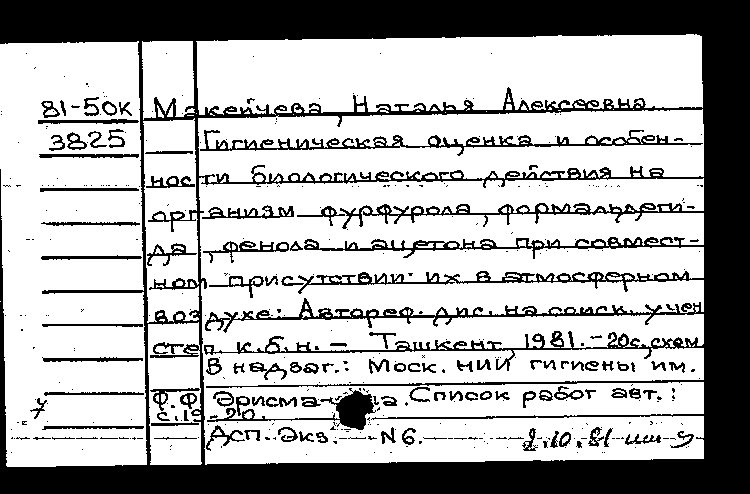 81-50к Макейчева, Наталья Алексеевна
3825 Гигиеническая оценка и особен-
ности биологического действия на
организм фурфурола, формальдеги-
да, фенола и ацетона при совмест-
ном присутствии их в атмосферном
воздухе: Автореф. дис. на соиск. учен
степ. к.б.н. – Ташкент, 1981. – 20с., схем
В надзаг.: Моск. НИИ гигиены им.
Ф.Ф. Эрисма а. Список работ авт.:
с.19-20.
Дсп. Экз. N6. 2.10.81